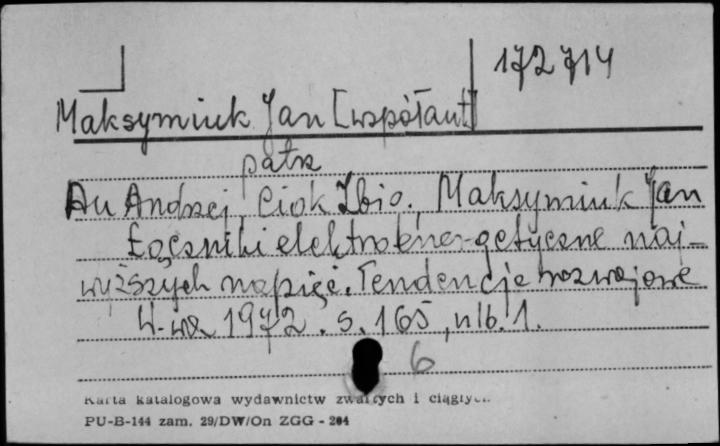 172714
Maksymiuk Jan [współaut]
patrz
Au Andrzej, Ciok Zbig., Maksymiuk Jan
Łączniki elektroenergetyczne naj-
wyższych napięć. Tendencje rozwojowe
W-wa 1972. s. 165, nlb. 1.
6
Karta katalogowa wydawnictw zwartych i ciągłych
PU-B-144 zam. 29/DW/On ZGG - 204